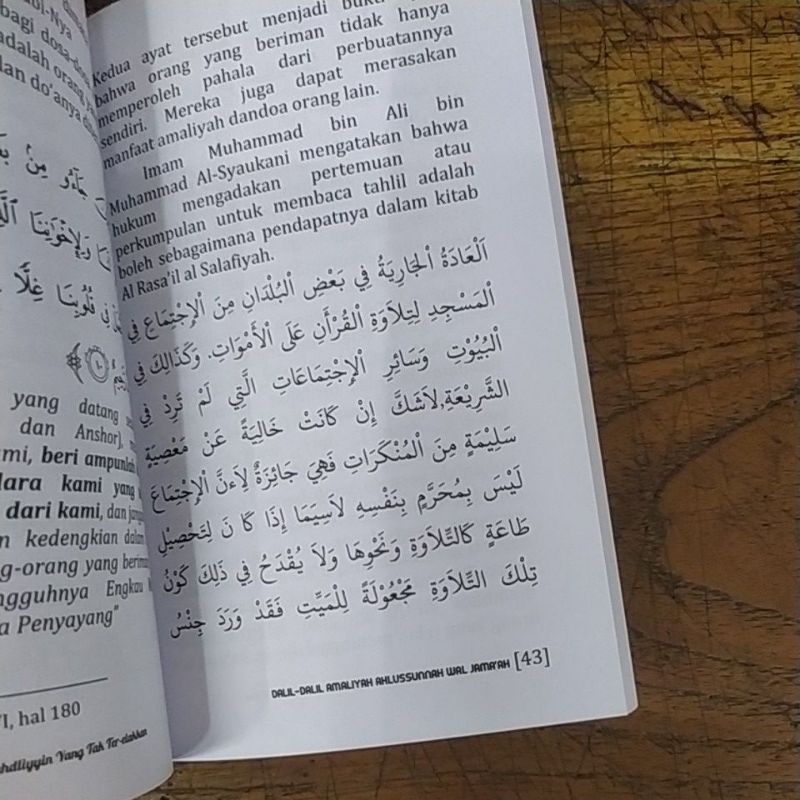 bagi dosa-dosa
adalah orang
dan do'anya
yang datang
dan Anshor),
beri ampunlah
kami yang
dari kami, dan
kedengkian dalam
orang yang
Engkau
Penyayang"
hal 180
Yang Tak
Kedua ayat tersebut menjadi
bahwa orang yang beriman tidak hanya
memperoleh pahala dari perbuatannya
sendiri. Mereka juga dapat merasakan
manfaat amaliyah dandoa orang lain.
Imam Muhammad bin Ali bin
Muhammad Al-Syaukani mengatakan bahwa
hukum mengadakan pertemuan atau
perkumpulan untuk membaca tahlil adalah
boleh sebagaimana pendapatnya dalam kitab
Al Rasa'il al Salafiyah.
اَلْعَادَةُ الْجَارِيَةُ فِي بَعْضِ الْبُلْدَانِ مِنَ الْاِجْتِمَاعِ فِي
الْمَسْجِدِ لِتِلَاوَةِ الْقُرْأَنِ عَلَى الْأَمْوَاتِ. وَكَذَالِكَ فِي
الْبُيُوْتِ وَسَائِرِ الْإِجْتِمَاعَاتِ الَّتِي لَمْ تَرِدْ فِي
الشَّرِيْعَةِ,لَاشَكَّ إِنْ كَانَتْ خَالِيَةً عَنْ مَعْصِيَةٍ
سَلِيْمَةٍ مِنَ الْمُنْكَرَاتِ فَهِيَ جَائِزَةٌ لِأَنَّ الْإِجْتِمَاعَ
لَيْسَ بِمُحَرَّمٍ بِنَفْسِهِ لَاسِيَمَا إِذَا كَا نَ لِتَحْصِيْلِ
طَاعَةٍ كَالتِّلَاوَةِ وَنَحْوِهَا وَلَا يُقْدَحُ فِي ذَلِكَ كَوْنُ
تِلْكَ التِّلَاوَةِ مَجْعُوْلَةً لِلْمَيِّتِ فَقَدْ وَرَدَ جِنْسُ
DALIL-DALIL AMALIYAH AHLUSSUNNAH WAL JAMA'AH [43]